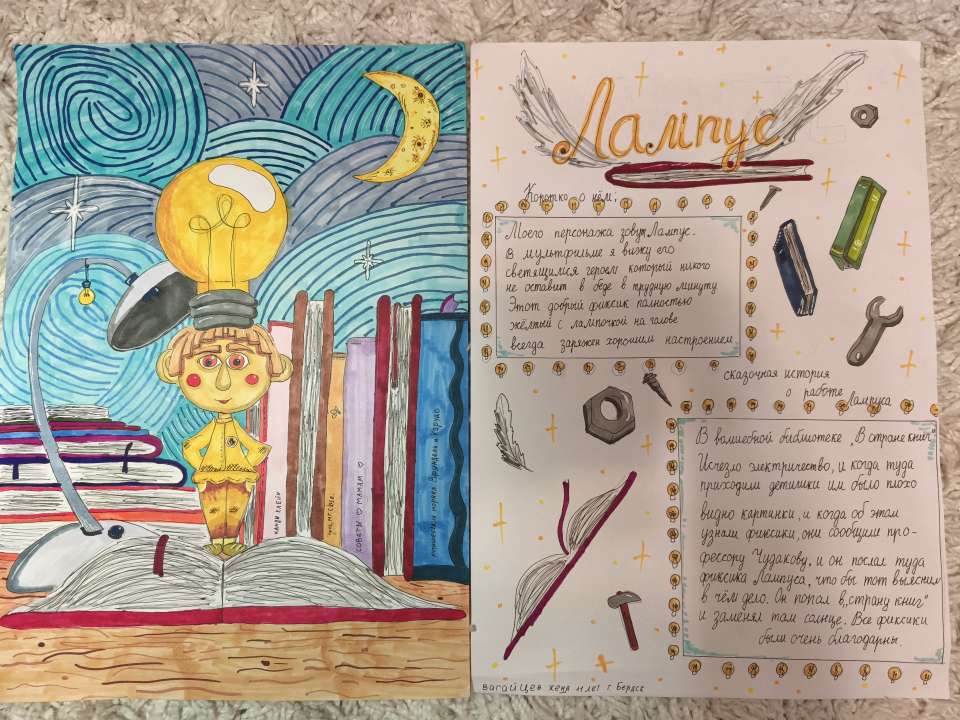 советы мамам
Лампус
Коротко о нём:
Моего персонажа зовут Лампус.
В мультфильме я вижу его
светящимся героем который никого
не оставит в беде в трудную минуту
Этот добрый фиксик полностью
жёлтый с лампочкой на голове
всегда заряжен хорошим настроением
сказочная история
о работе
Лампуса
В волшебной библиотеке „В стране книг"
Исчезло электричество, и когда туда
приходили детишки им было плохо
видно картинки, и когда об этом
узнали фиксики, они сообщили про-
фессору Чудакову, и он послал туда
фиксика Лампуса, что бы тот выяснил
в чём дело. Он попал в „страну книг"
и заменял там солнце. Все фиксики
были очень благодарны.
11 лет г. Бердск